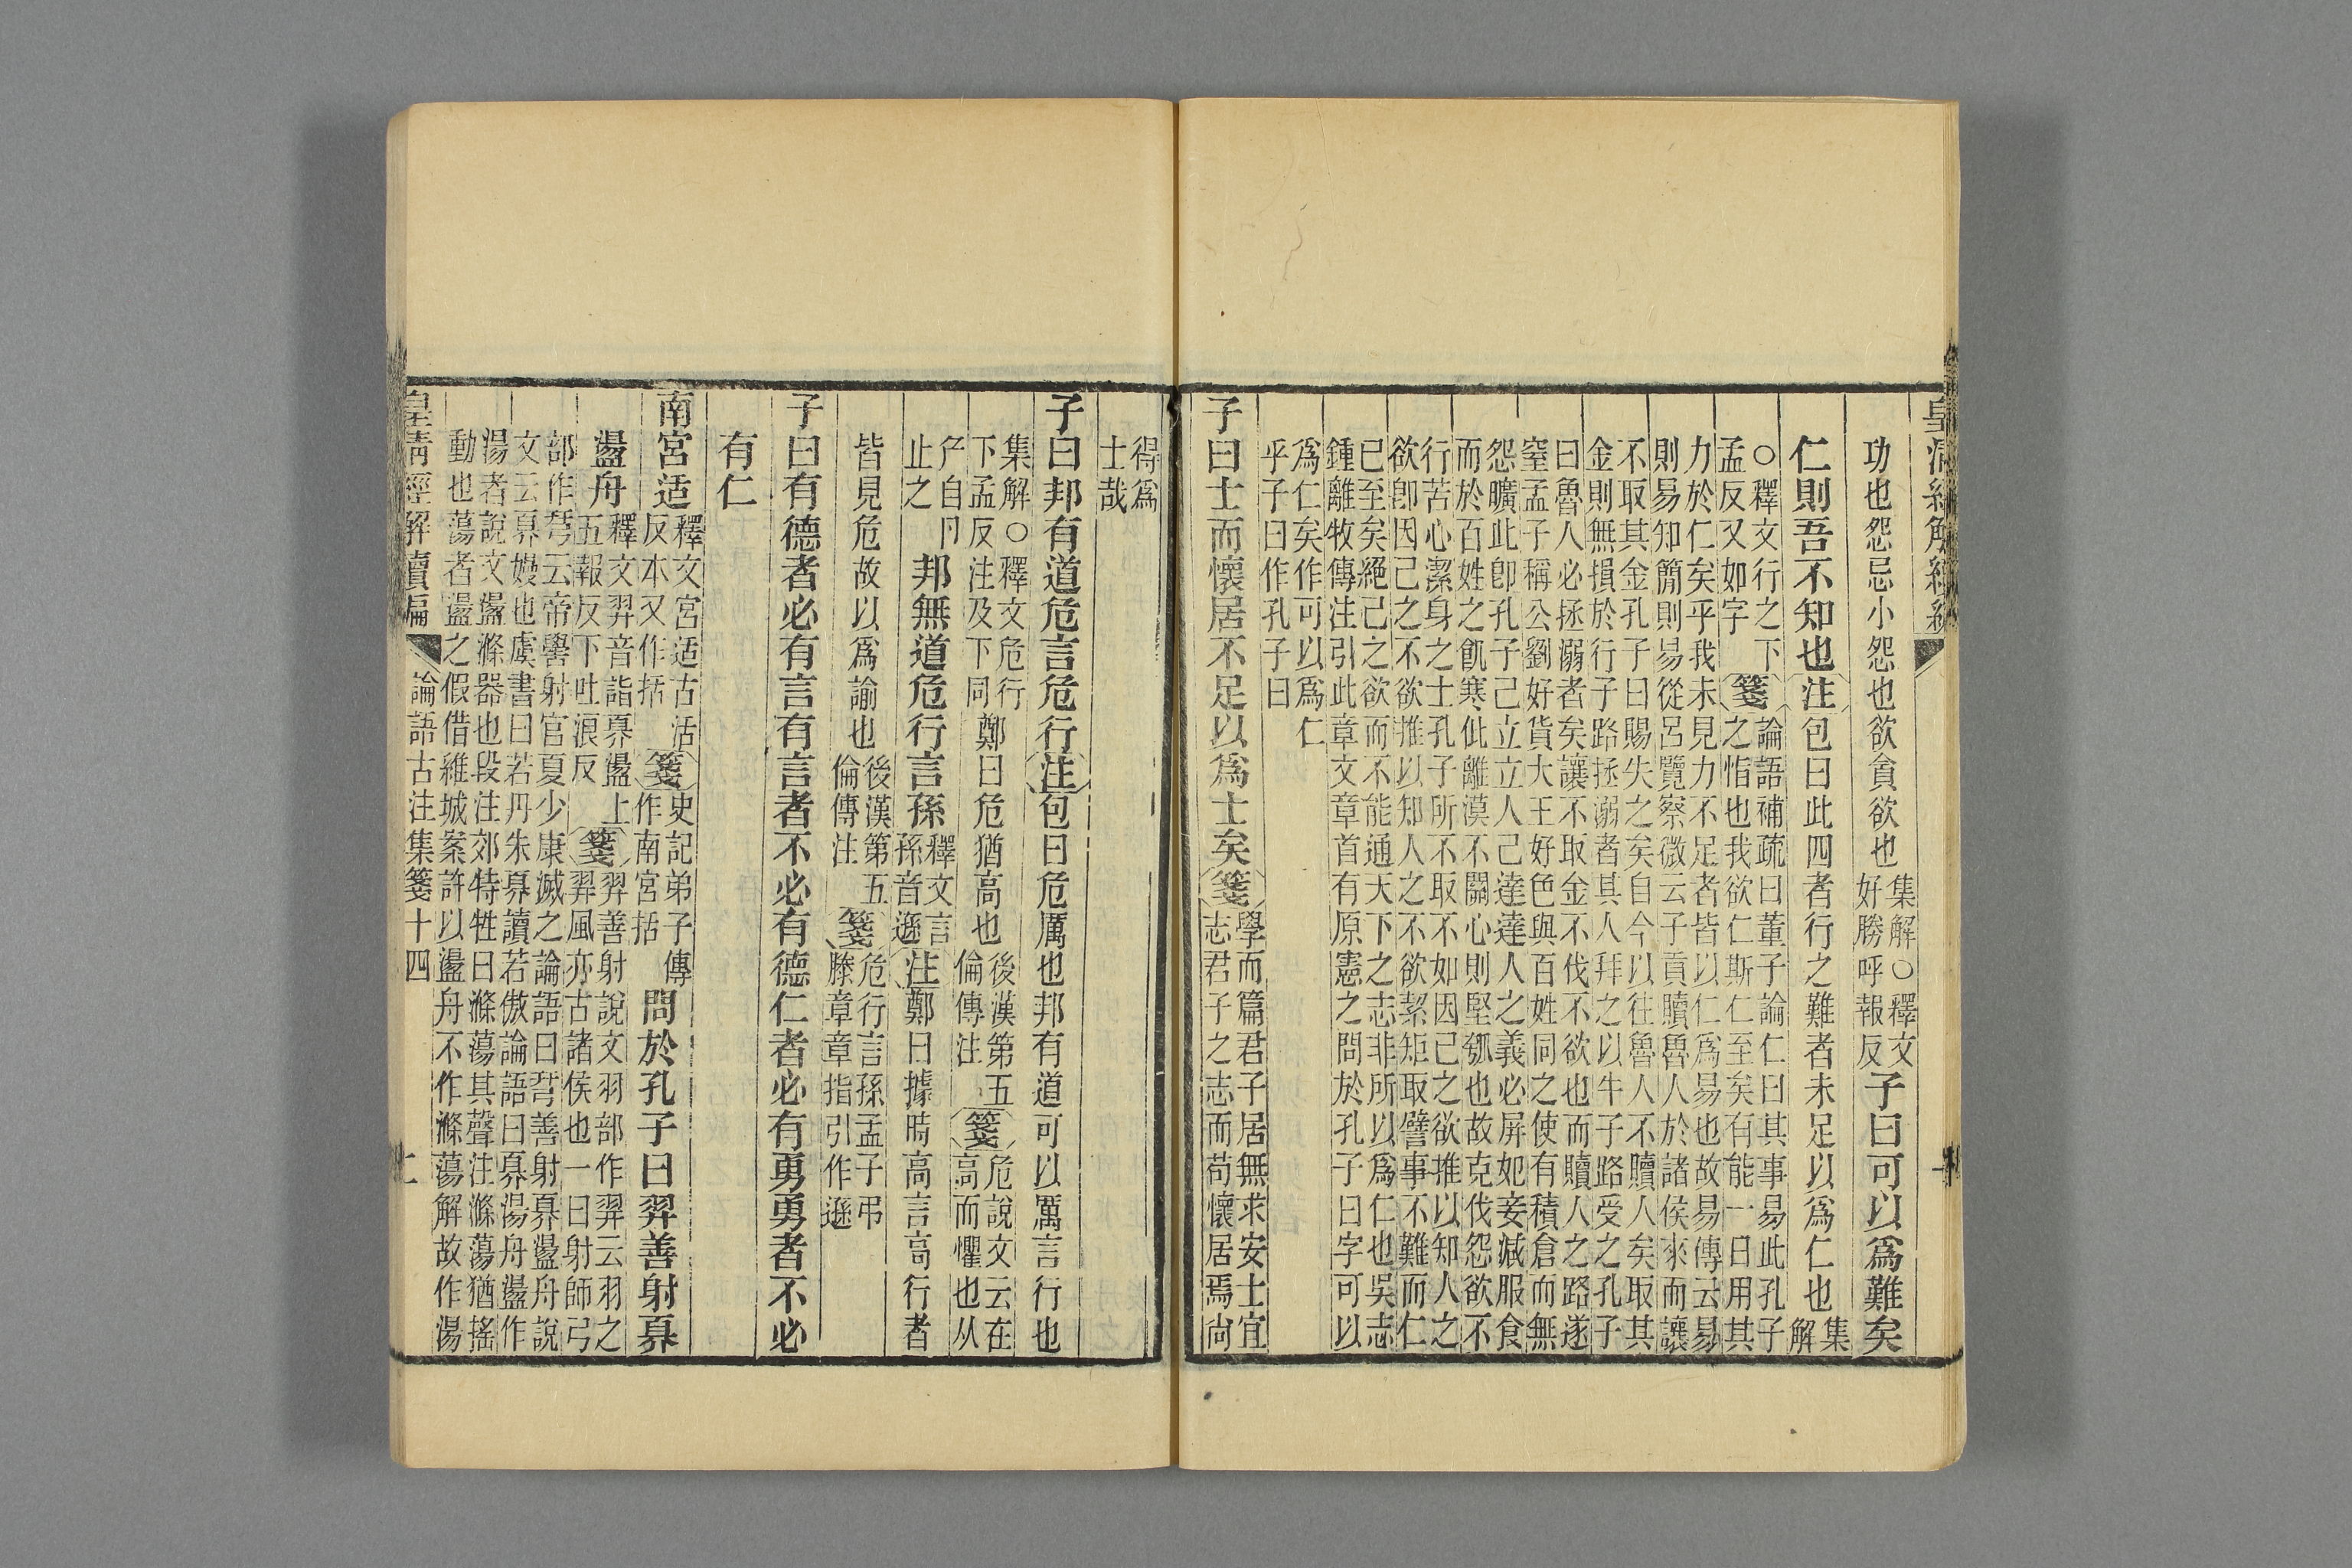 皇清經解續編
功也怨忌小怨也欲貪欲也集解○釋文
好勝呼報反子曰可以爲難矣
仁則吾不知也注包曰此四者行之難者未足以爲仁也集
解
○釋文行之下
孟反又如字箋論語補疏曰董子論仁曰其事易此孔子
之恉也我欲仁斯仁至矣有能一日用其
力於仁矣乎我未見力不足者皆以仁爲易也故易傳云易
則易知簡則易從呂覽察微云子貢贖魯人於諸侯來而讓
不取其金孔子曰賜失之矣自今以往魯人不贖人矣取其
金則無損於行子路拯溺者其人拜之以牛子路受之孔子
曰魯人必拯溺者矣讓不取金不伐不欲也而贖人之路遂
窒孟子稱公劉好貨大王好色與百姓同之使有積倉而無
怨曠此卽孔子己立立人己達達人之義必屏妃妾減服食
而於百姓之飢寒仳離漠不關心則堅瓠也故克伐怨欲不
行苦心潔身之士孔子所不取不如因己之欲推以知人之
欲卽因己之不欲推以知人之不欲絜矩取譬事不難而仁
已至矣絕己之欲而不能通天下之志非所以爲仁也吳志
鍾離牧傳注引此章文章首有原憲之問於孔子曰字可以
爲仁矣作可以爲仁
乎子曰作孔子曰
子曰士而懷居不足以爲士矣箋學而篇君子居無求安士宜
志君子之志而苟懷居焉尚
得爲
士哉
子曰邦有道危言危行注包曰危厲也邦有道可以厲言行也
集解○釋文危行
下孟反注及下同鄭曰危猶高也後漢第五
倫傳注箋危說文云在
高而懼也从
厃自卪
止之邦無道危行言孫釋文言
孫音遜注鄭曰據時高言高行者
皆見危故以爲諭也後漢第五
倫傳注箋危行言孫孟子弔
滕章章指引作遜
子曰有德者必有言有言者不必有德仁者必有勇勇者不必
有仁
南宮适釋文宮适古活
反本又作括箋史記弟子傳
作南宮括問於孔子曰羿善射奡
盪舟釋文羿音詣奡盪上
五報反下吐浪反箋羿善射說文羽部作羿云羽之
羿風亦古諸侯也一曰射師弓
部作𢏗云帝嚳射官夏少康滅之論語曰𢏗善射奡盪舟說
文云奡嫚也虞書曰若丹朱奡讀若傲論語曰奡湯舟盪作
湯者說文盪滌器也段注郊特牲曰滌蕩其聲注滌蕩猶搖
動也蕩者盪之假借維城案許以盪舟不作滌蕩解故作湯
皇清經解續編 論語古注集箋十四